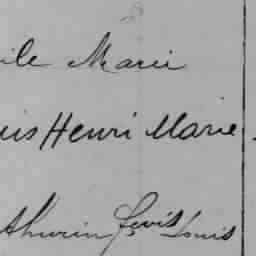 ile Marie
uis Henri Marie
thurin Louis